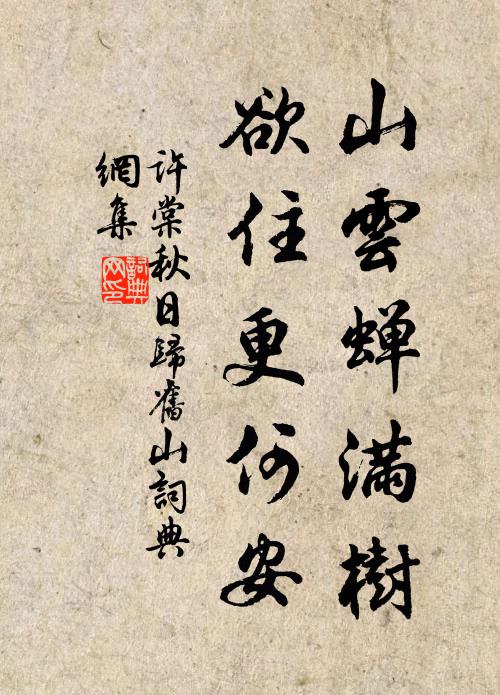 山雲蟬滿樹
欲住更何安
許棠秋日歸舊山詞典
網集
詞典
网印